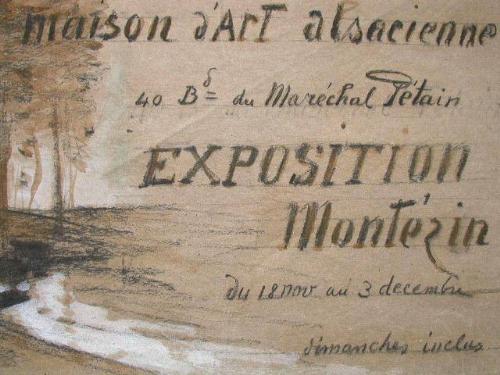 maison d'Art alsacienne
40 Bd du Maréchal Pétain
EXPOSITION
Montézin
du 18 nov au 3 decembre
dimanches inclus